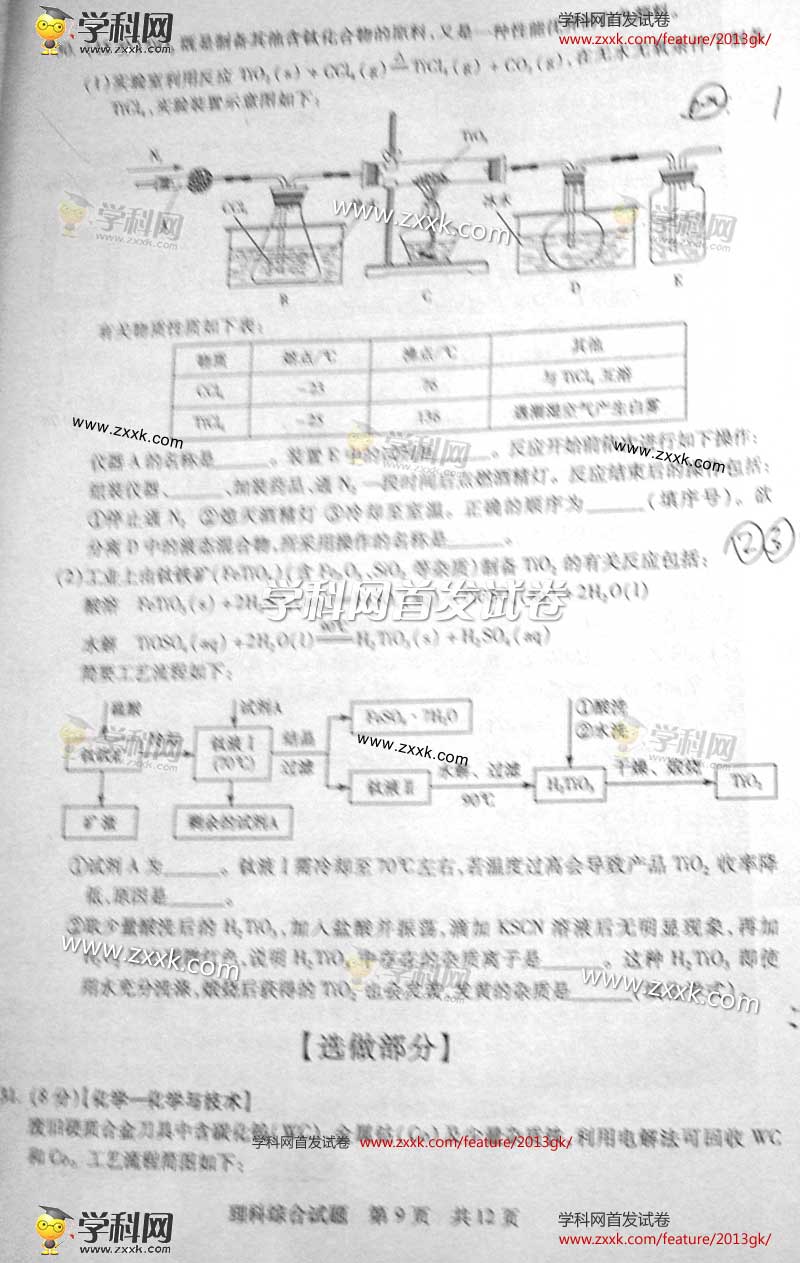 学科网 www.zxxk.com
学科网首发试卷
www.zxxk.com/feature/2013gk/
既是制备其他含钛化合物的原料,又是一种性能
(1)实验室利用反应 TiO₂(s)+CCl₄(g) △ TiCl₄(g)+CO₂(g),在无水无氧条件
TiCl₄,实验装置示意图如下:
1
TiO₂
N₂
A
CCl₄
冰水
B
C
D
E
学科网 zxxk.com
www.zxxk.com
学科网 zxxk.com
有关物质性质如下表:
物质 熔点/℃ 沸点/℃ 其他
CCl₄ -23 76 与 TiCl₄ 互溶
TiCl₄ -25 136 遇潮湿空气产生白雾
www.zxxk.com
学科网 zxxk.com
www.zxxk.com
仪器 A 的名称是______。装置 E 中的试剂是______。反应开始前依次进行如下操作:
组装仪器、______、加装药品、通 N₂ 一段时间后点燃酒精灯。反应结束后的操作包括:
①停止通 N₂ ②熄灭酒精灯 ③冷却至室温。正确的顺序为______(填序号)。欲
分离 D 中的液态混合物,所采用操作的名称是______。
②③
(2)工业上由钛铁矿(FeTiO₃)(含 Fe₂O₃、SiO₂ 等杂质)制备 TiO₂ 的有关反应包括:
酸溶 FeTiO₃(s)+2H₂ +2H₂O(l)
学科网首发试卷
水解 TiOSO₄(aq)+2H₂O(l) 90℃ H₂TiO₃(s)+H₂SO₄(aq)
简要工艺流程如下:
硫酸
试剂A
①酸洗
②水洗
钛铁矿
钛液Ⅰ
(70℃)
结晶
过滤
FeSO₄·7H₂O
钛液Ⅱ
水解、过滤
90℃
H₂TiO₃
干燥、煅烧
TiO₂
矿渣
剩余的试剂A
学科网 zxxk.com
www.zxxk.com
学科网 zxxk.com
①试剂 A 为______。钛液Ⅰ需冷却至70℃左右,若温度过高会导致产品 TiO₂ 收率降
低,原因是______。
②取少量酸洗后的 H₂TiO₃,加入盐酸并振荡,滴加 KSCN 溶液后无明显现象,再加
色,说明 H₂TiO₃ 中存在的杂质离子是______。这种 H₂TiO₃ 即使
用水充分洗涤,煅烧后获得的 TiO₂ 也会发黄,发黄的杂质是______
www.zxxk.com
学科网 zxxk.com
www.zxxk.com
【选做部分】
31. (8分)【化学—化学与技术】
废旧硬质合金刀具中含碳化钨(WC)、金属钴(Co)及少量杂质铁,利用电解法可回收 WC
学科网首发试卷 www.zxxk.com/feature/2013gk/
和Co。工艺流程简图如下:
理科综合试题 第9页 共12页
学科网 www.zxxk.com
学科网首发试卷
www.zxxk.com/feature/2013gk/